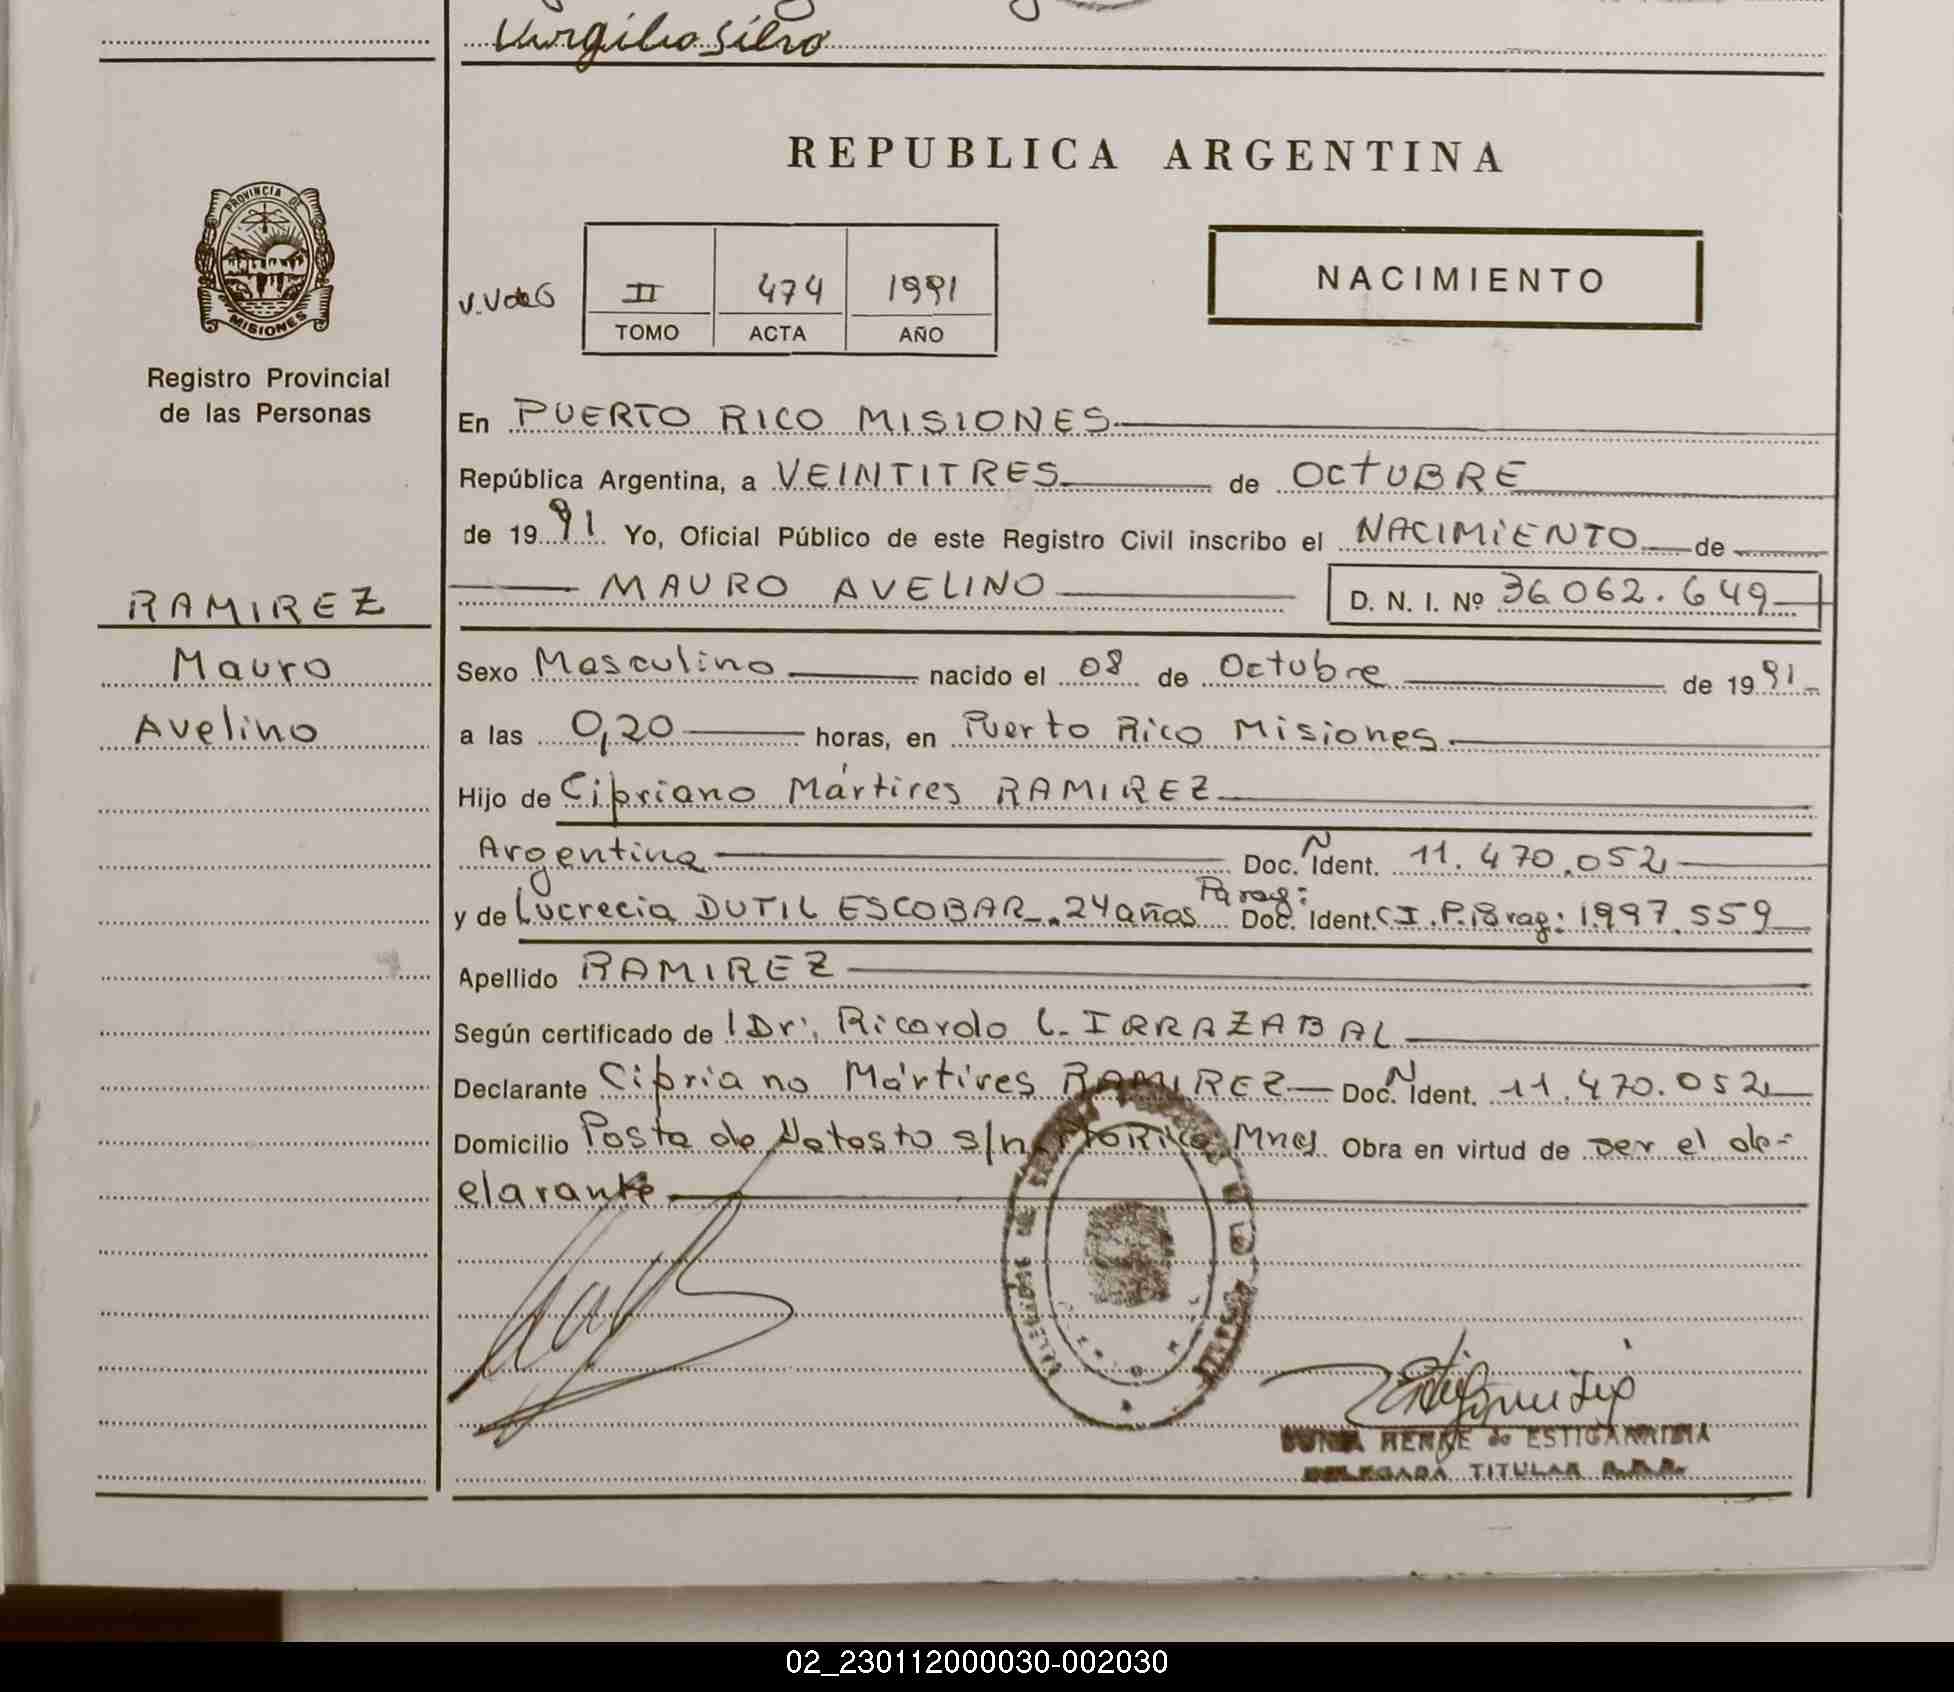 Virgilio Silva
PROVINCIA DE
MISIONES
Registro Provincial
de las Personas
RAMIREZ
Mauro
Avelino
REPUBLICA ARGENTINA
V.V de G
II 474 1991
TOMO ACTA AÑO
NACIMIENTO
En PUERTO RICO MISIONES
República Argentina, a VEINTITRES de OCTUBRE
de 1991 Yo, Oficial Público de este Registro Civil inscribo el NACIMIENTO de
MAURO AVELINO D. N. I. Nº 36.062.649
Sexo Masculino nacido el 08 de Octubre de 1991
a las 0,20 horas, en Puerto Rico Misiones
Hijo de Cipriano Mártires RAMIREZ
Argentina Doc. N Ident. 11.470.052
y de Lucrecia DUTIL ESCOBAR 24 años Parag: Doc. Ident. C I. Parag: 1.997.559
Apellido RAMIREZ
Según certificado de Dr. Ricardo L. IRRAZABAL
Declarante Cipriano Mártires RAMIREZ Doc. N Ident. 11.470.052
Domicilio s/n Pto Rico Mnes Obra en virtud de ser el de-
clarante
HENKE de ESTIGARRIBIA
DELEGADA TITULAR
02_230112000030-002030